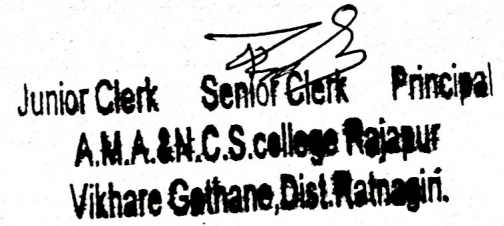 Junior Clerk Senior Clerk Principal
A.M.A.&N.C.S.college Rajapur
Vikhare Gothane,Dist.Ratnagiri.